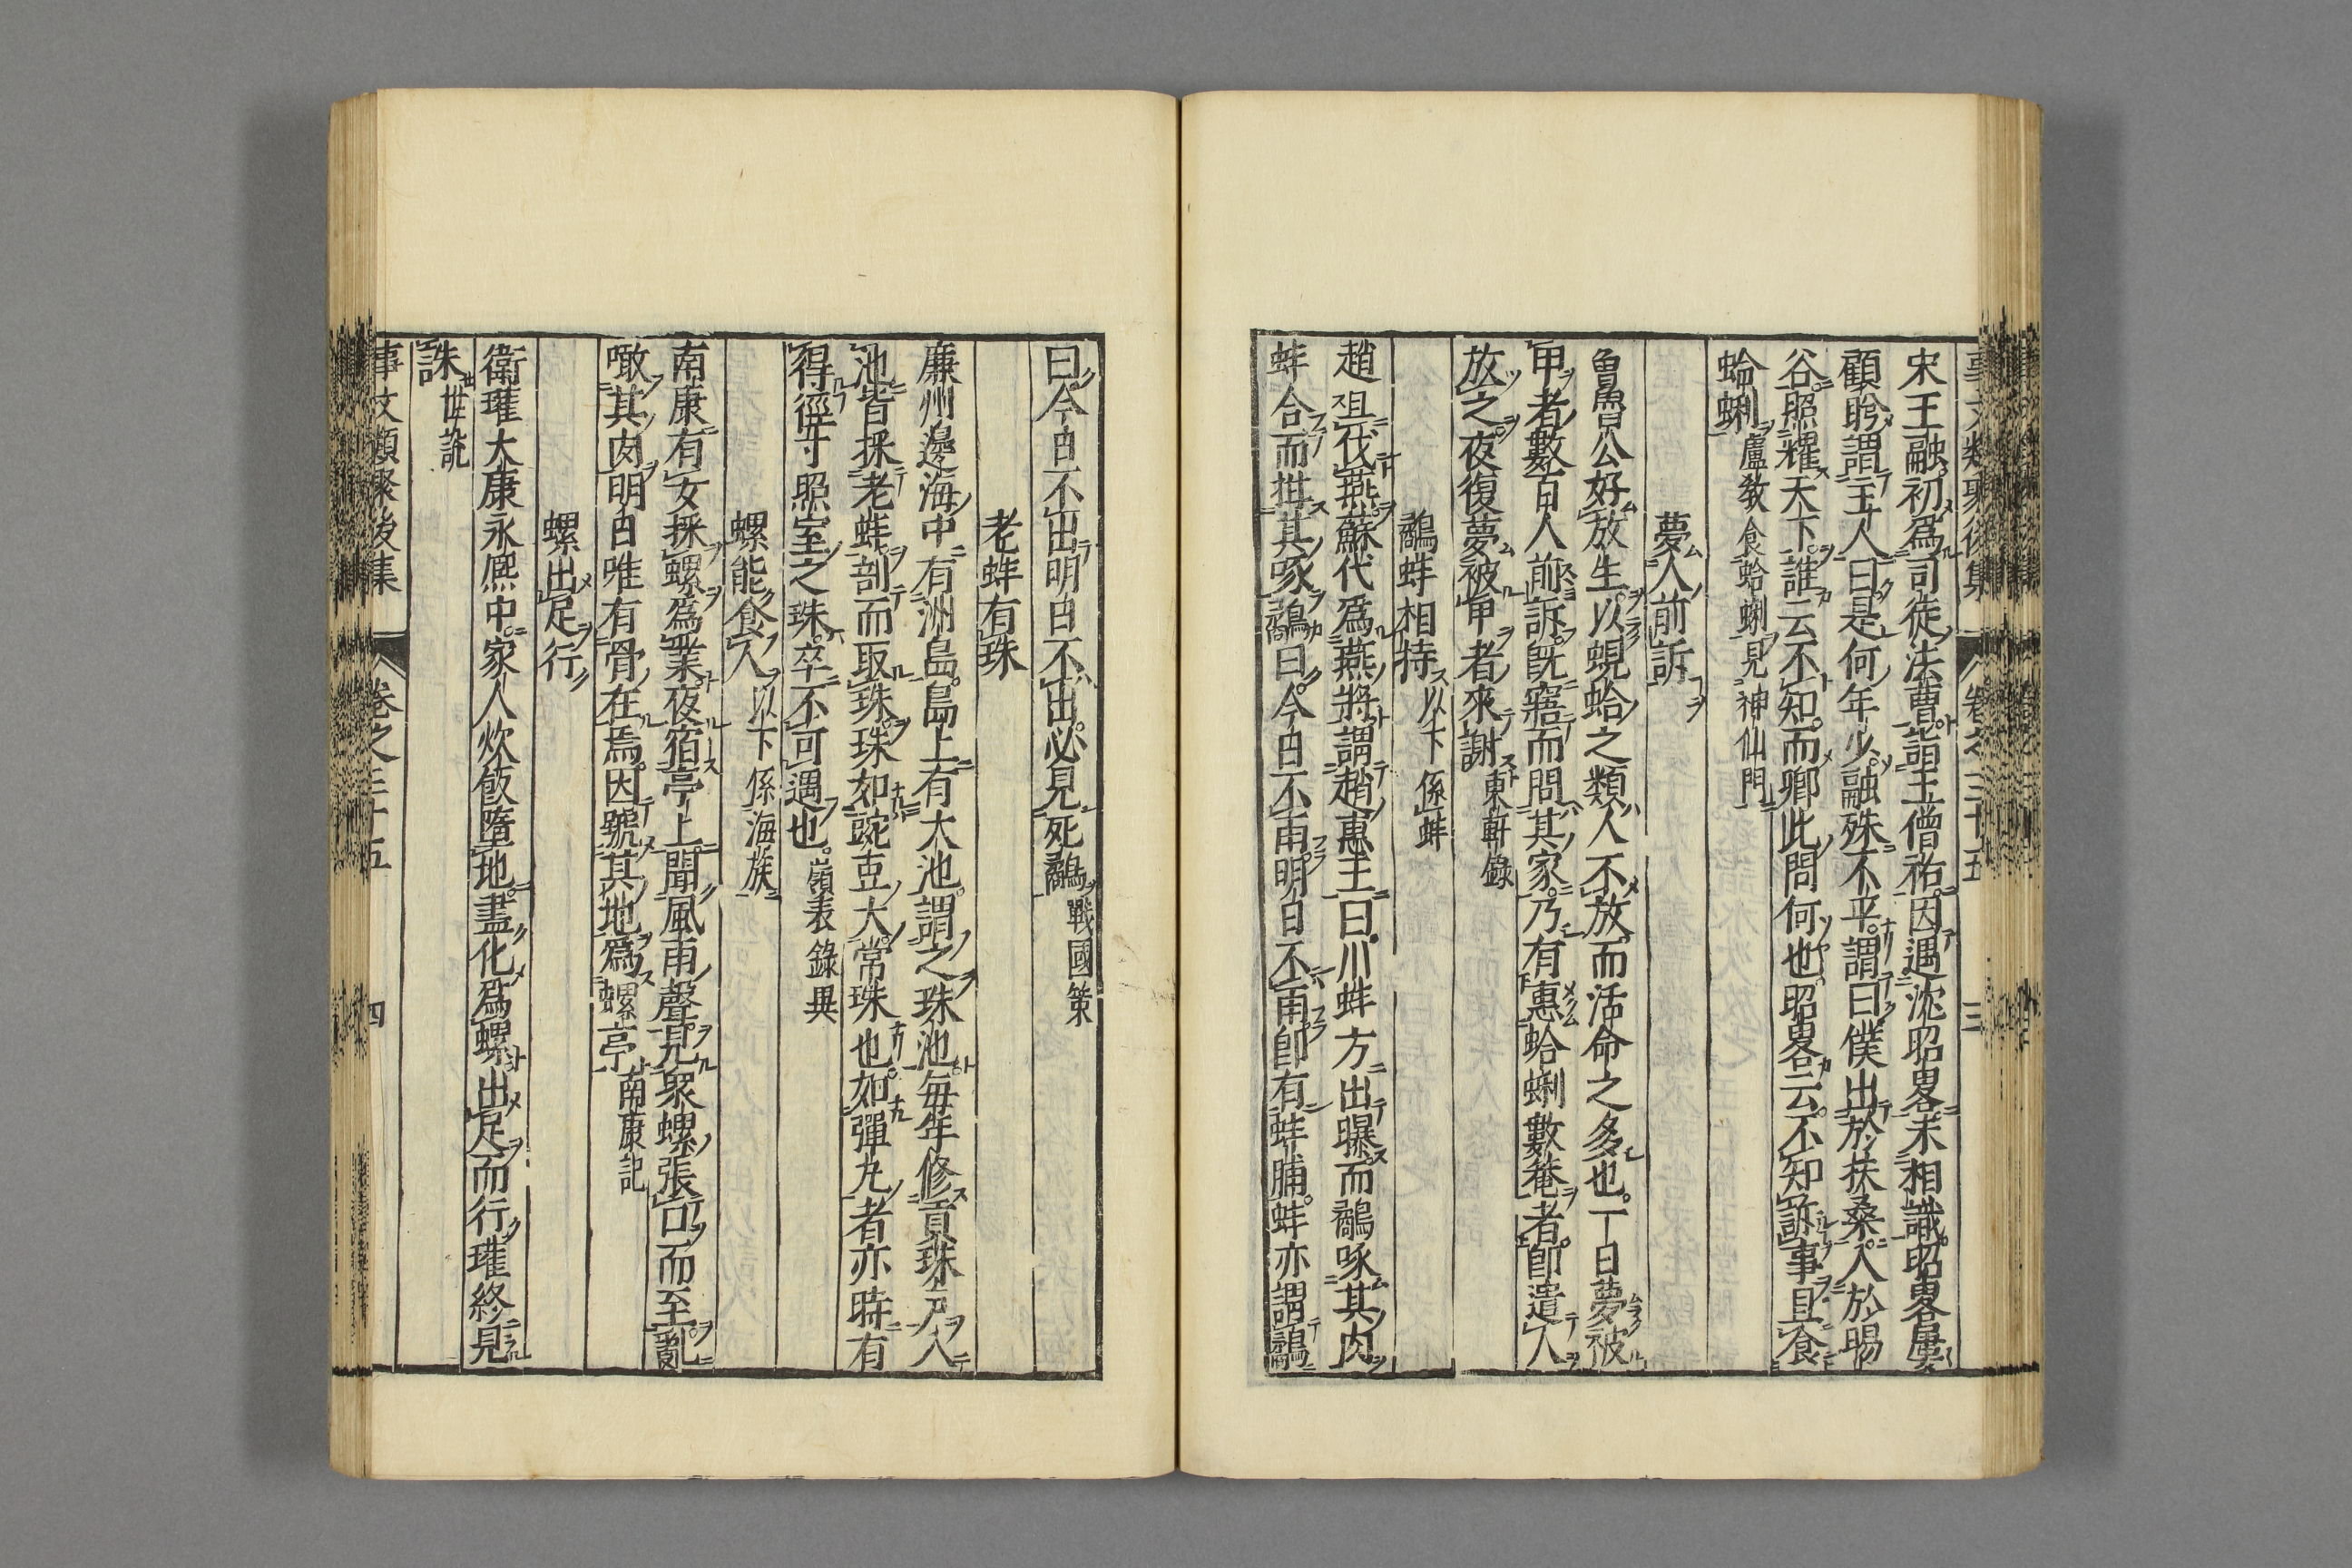 事文類聚後集 卷之三十五 三
宋王融初爲司徒法曹詣王僧祐因遇沈昭畧未相識昭畧屢
顧眄謂主人曰是何年少融殊不平謂曰僕出於扶桑入於暘
谷照耀天下誰云不知而卿此問何也昭畧云不知許事且食
蛤蜊 盧敖食蛤蜊見神仙門
夢人前訴
魯公好放生以蜆蛤之類人不放而活命之多也一日夢被
甲者數百人前訴既寤而問其家乃有惠蛤蜊數菴者即遣人
放之夜復夢被甲者來謝 東軒錄
鷸蚌相持 以下係蚌
趙且伐燕蘇代爲燕將謂趙惠王曰川蚌方出曝而鷸啄其肉
蚌合而拑其喙鷸曰今日不雨明日不雨即有蚌脯蚌亦謂鷸
曰今日不出明日不出必見死鷸 戰國策
老蚌有珠
廉州邊海中有洲島島上有大池謂之珠池每年修貢珠戶入
池皆採老蚌剖而取珠珠如豌豆大常珠也如彈丸者亦時有
得徑寸照室之珠卒不可遇也 嶺表錄異
螺能食人 以下係海族
南康有女採螺爲業夜宿亭上聞風雨聲見衆螺張口而至亂
噉其肉明日唯有骨在焉因號其地爲螺亭 南康記
螺出足行
衛瓘大康永熈中家人炊飯墮地盡化爲螺出足而行瓘終見
誅 世說
事文類聚後集 卷之三十五 四